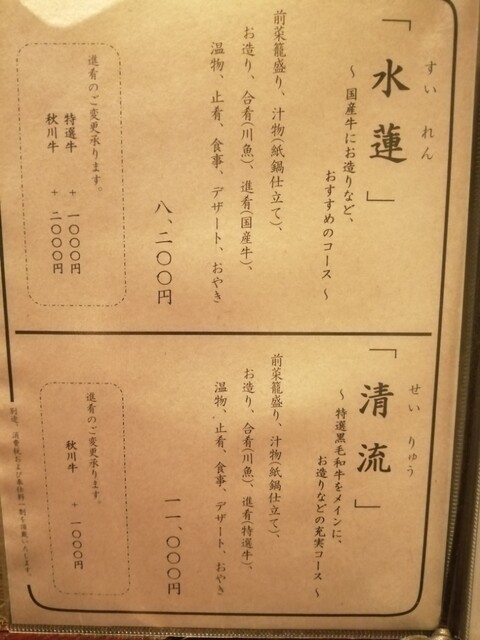 すいれん
「水蓮」
～国産牛にお造りなど、
おすすめのコース～
前菜籠盛り、汁物(紙鍋仕立て)、
お造り、合肴(川魚)、進肴(国産牛)、
温物、止肴、食事、デザート、おやき
八、二〇〇円
進肴のご変更承ります。
特選牛 + 一〇〇〇円
秋川牛 + 二〇〇〇円
せいりゅう
「清流」
～特選黒毛和牛をメインに、
お造りなどの充実コース～
前菜籠盛り、汁物(紙鍋仕立て)、
お造り、合肴(川魚)、進肴(特選牛)、
温物、止肴、食事、デザート、おやき
一一、〇〇〇円
進肴のご変更承ります。
秋川牛 + 一〇〇〇円
別途、消費税および奉仕料一割を頂戴いたします。